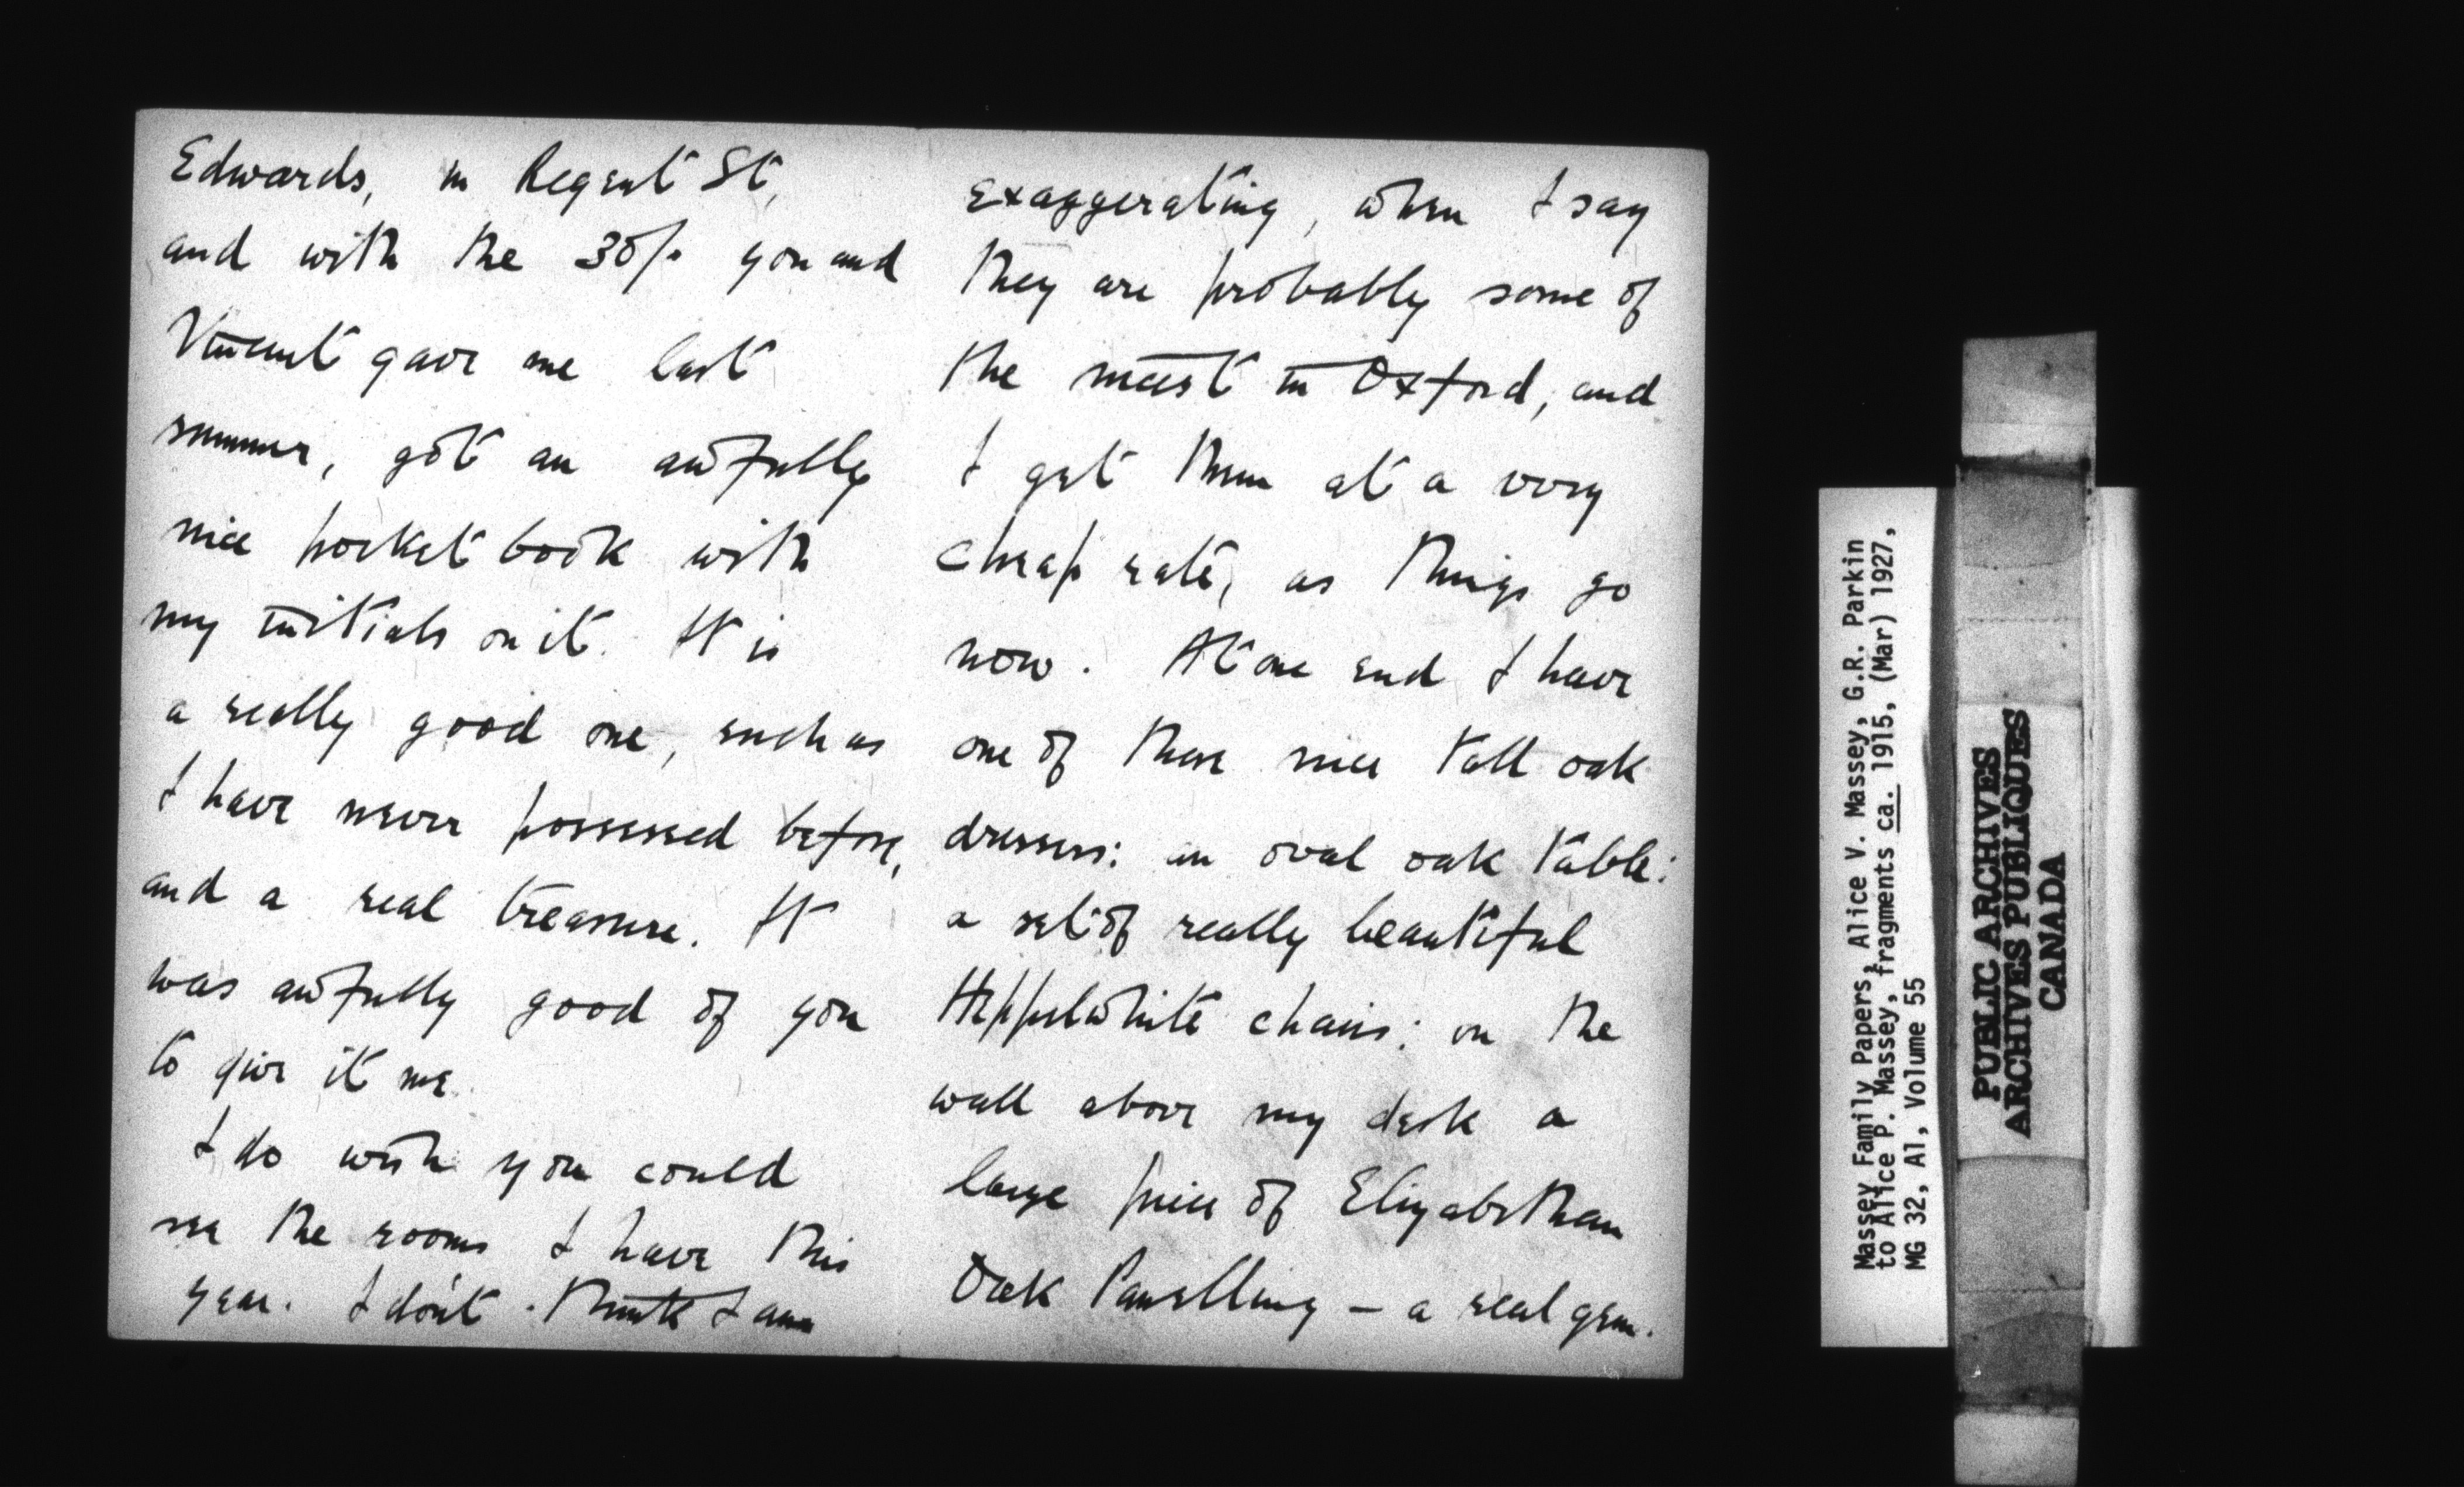 Edwards, in Regent St,
and with the 30/- you and
Vincent gave me last
summer, got an awfully
nice pocket book with
my initials on it. It is
a really good one, such as
I have never possessed before,
and a real treasure. It
was awfully good of you
to give it me.
I do wish you could
see the rooms I have this
year. I don't think I am
exaggerating, when I say
they are probably some of
the nicest in Oxford, and
I get them at a very
cheap rate, as things go
now. At one end I have
one of those nice tall oak
dressers: an oval oak table:
a set of really beautiful
Heppelwhite chairs: on the
wall above my desk a
large piece of Elizabethan
Oak Panelling - a real gem.
Massey Family Papers, Alice V. Massey, G.R. Parkin
to Alice P. Massey, fragments ca. 1915, (Mar) 1927,
MG 32, A1, Volume 55
PUBLIC ARCHIVES
ARCHIVES PUBLIQUES
CANADA